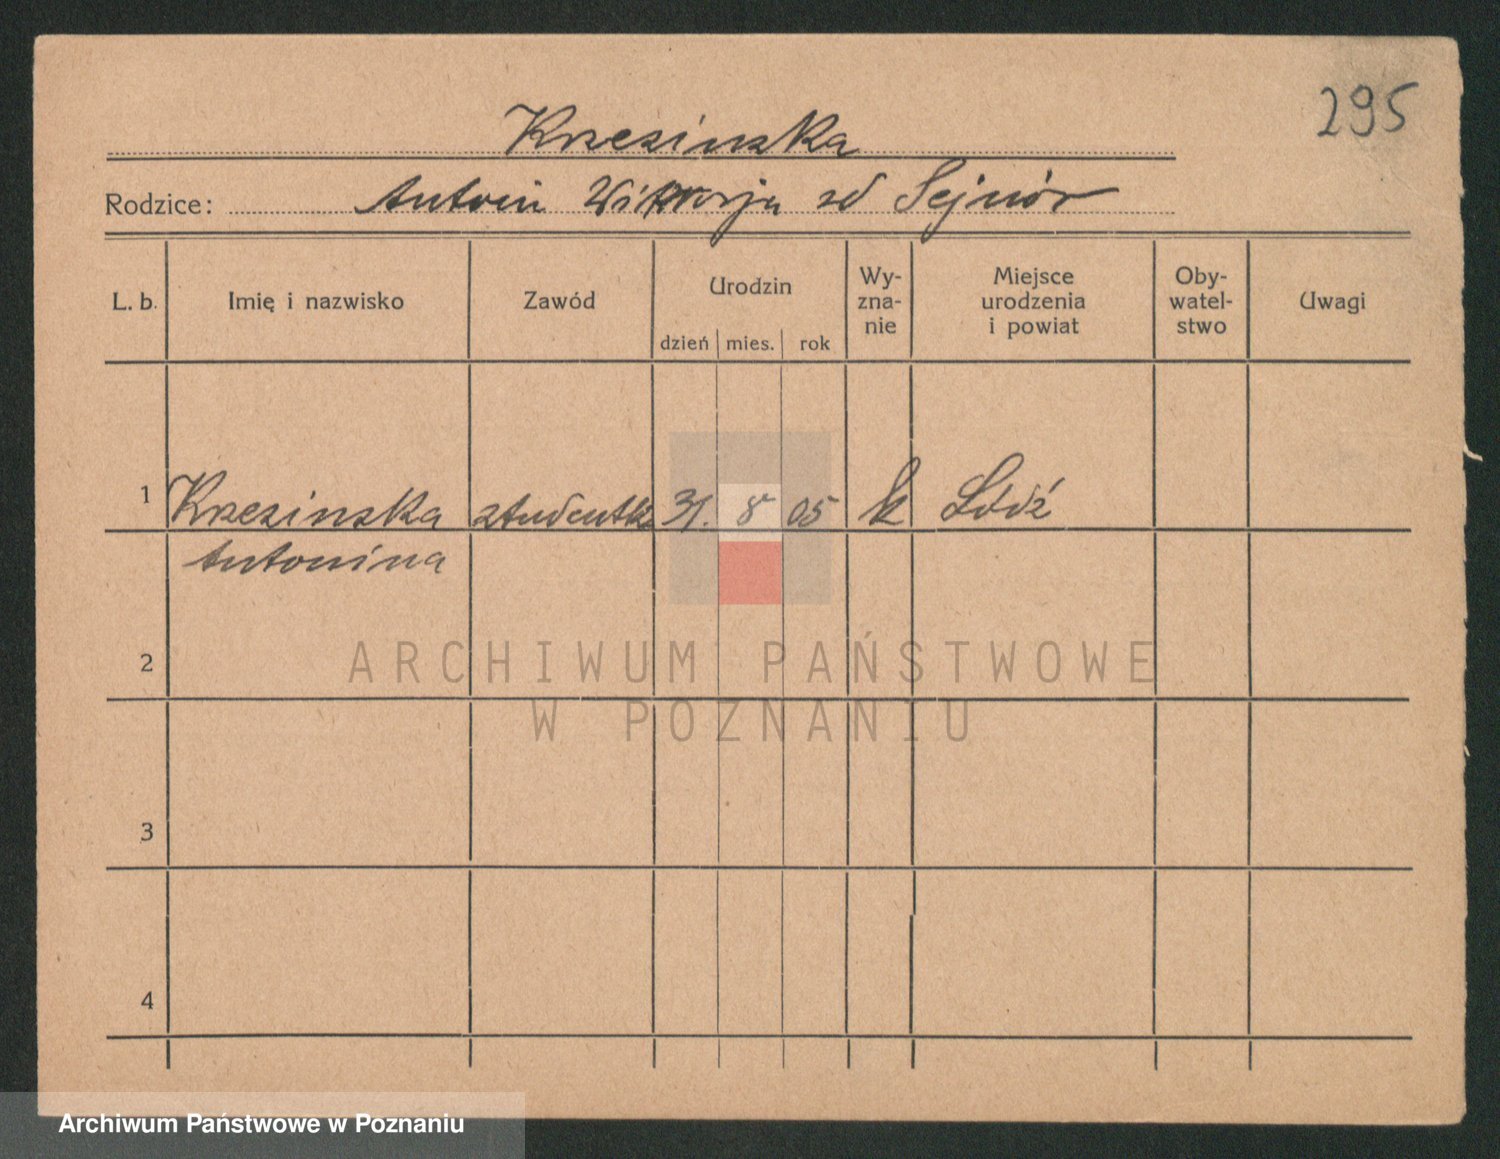 295
Krzesinska
Rodzice: Antoni Wiktorja zd Sejnór
L. b. Imię i nazwisko Zawód Urodzin dzień mies. rok Wy-zna-nie Miejsce urodzenia i powiat Oby-watel-stwo Uwagi
1 Krzesinska studentk 31. 8 05 k Łódź
Antonina
2
ARCHIWUM PAŃSTWOWE
W POZNANIU
3
4
Archiwum Państwowe w Poznaniu